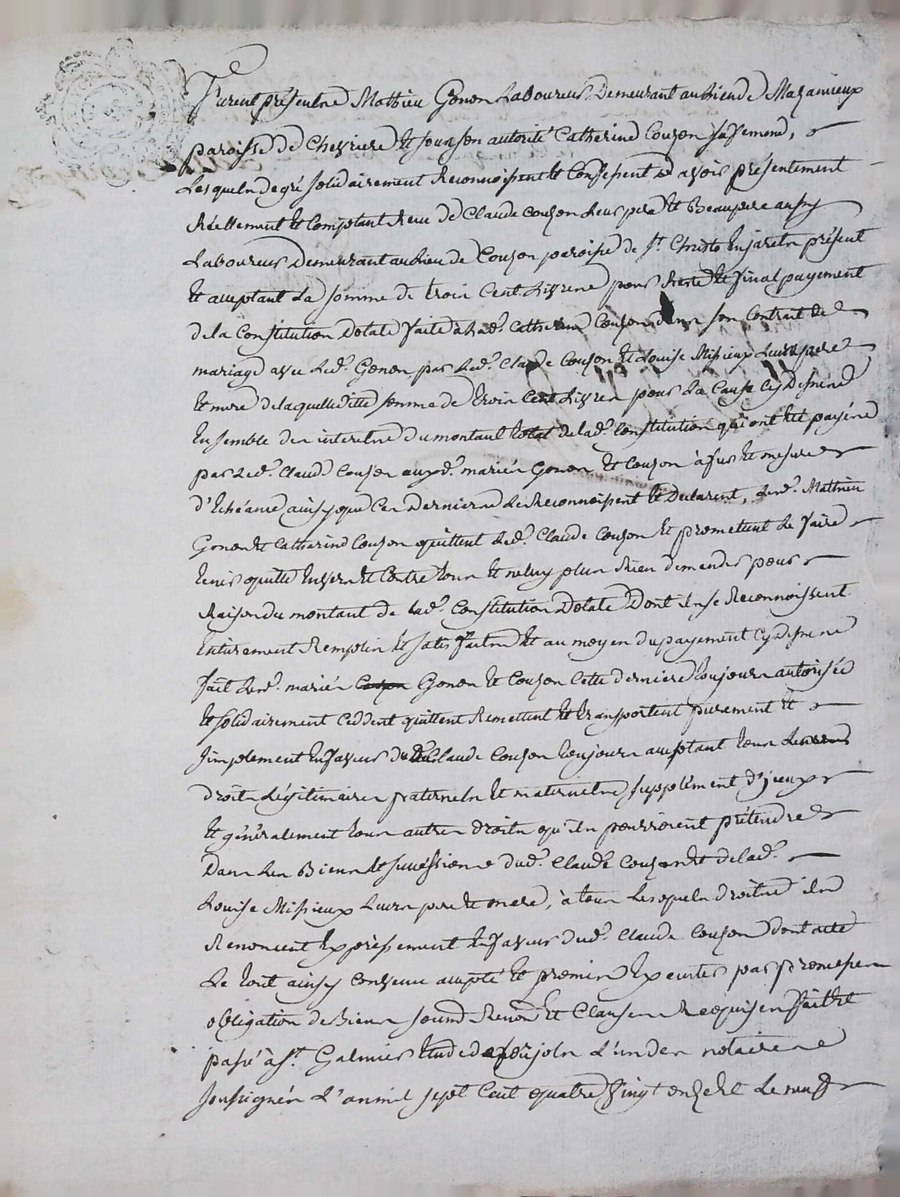 Furent présents Mathieu Gonon Laboureur Demeurant au lieu de Mazanieux
paroisse de Chevriere et sous son autorité Catherine Couzon sa femme,
Lesquels de gré solidairement Reconnoissent et Confessent avoir présentement
Réellement et Comptant Reçu de Claude Couzon Leur pere et Beaupere aussy
Laboureur Demeurant au lieu de Couzon paroisse de St. Christo En jarets présent
et acceptant La somme de trois Cent Livres pour Reste et final payement
de la Constitution Dotale faite à lad. Catherine Couzon dans son Contrat de
mariage avec Led. Gonon par Led. Claude Couzon et Louise Missieux Leurs pere
et mere de laquelle ditte somme de trois Cent Livres pour La Cause Cy Dessus
Ensemble des interets du montant total de lad. Constitution qui ont été payés
par Led. Claude Couzon auxd. mariés Gonon et Couzon à fur et mesure
d'Echéance ainsy que Ces Derniers Le Reconnoissent et Declarent, Lesd. Mathieu
Gonon et Catherine Couzon quittent Led. Claude Couzon et promettent Le faire
tenir quitte Envers et Contre tous et ne luy plus Rien demander pour
Raison du montant de lad. Constitution Dotale Dont ils se Reconnoissent
Entierement Remplis et satisfaits et au moyen du payement Cy dessus
fait Lesd. mariés Couzon Gonon et Couzon Cette derniere toujours autorisée
et solidairement Cèddent quittent Remettent et transportent purement et
simplement En faveur dud. Claude Couzon toujours acceptant tous Leurs
droits Légitimaires paternels et maternels supplément d'iceux
et généralement tous autres droits qu'ils pourroient prétendre
Dans Les Biens et successions dud. Claude Couzon et de lad.
Louise Missieux Leurs pere et mere, à tous Lesquels droits ils
Renoncent Expressement En faveur dud. Claude Couzon dont acte
Le tout ainsy Convenu accepté et promis Executer par promesse
obligation de Biens soumd. Renon. et Clauses Requises fait et
passé à St. Galmier Etude de L'un des notaires
soussignés L'an mil sept Cent quatre vingt onze et Le neuf